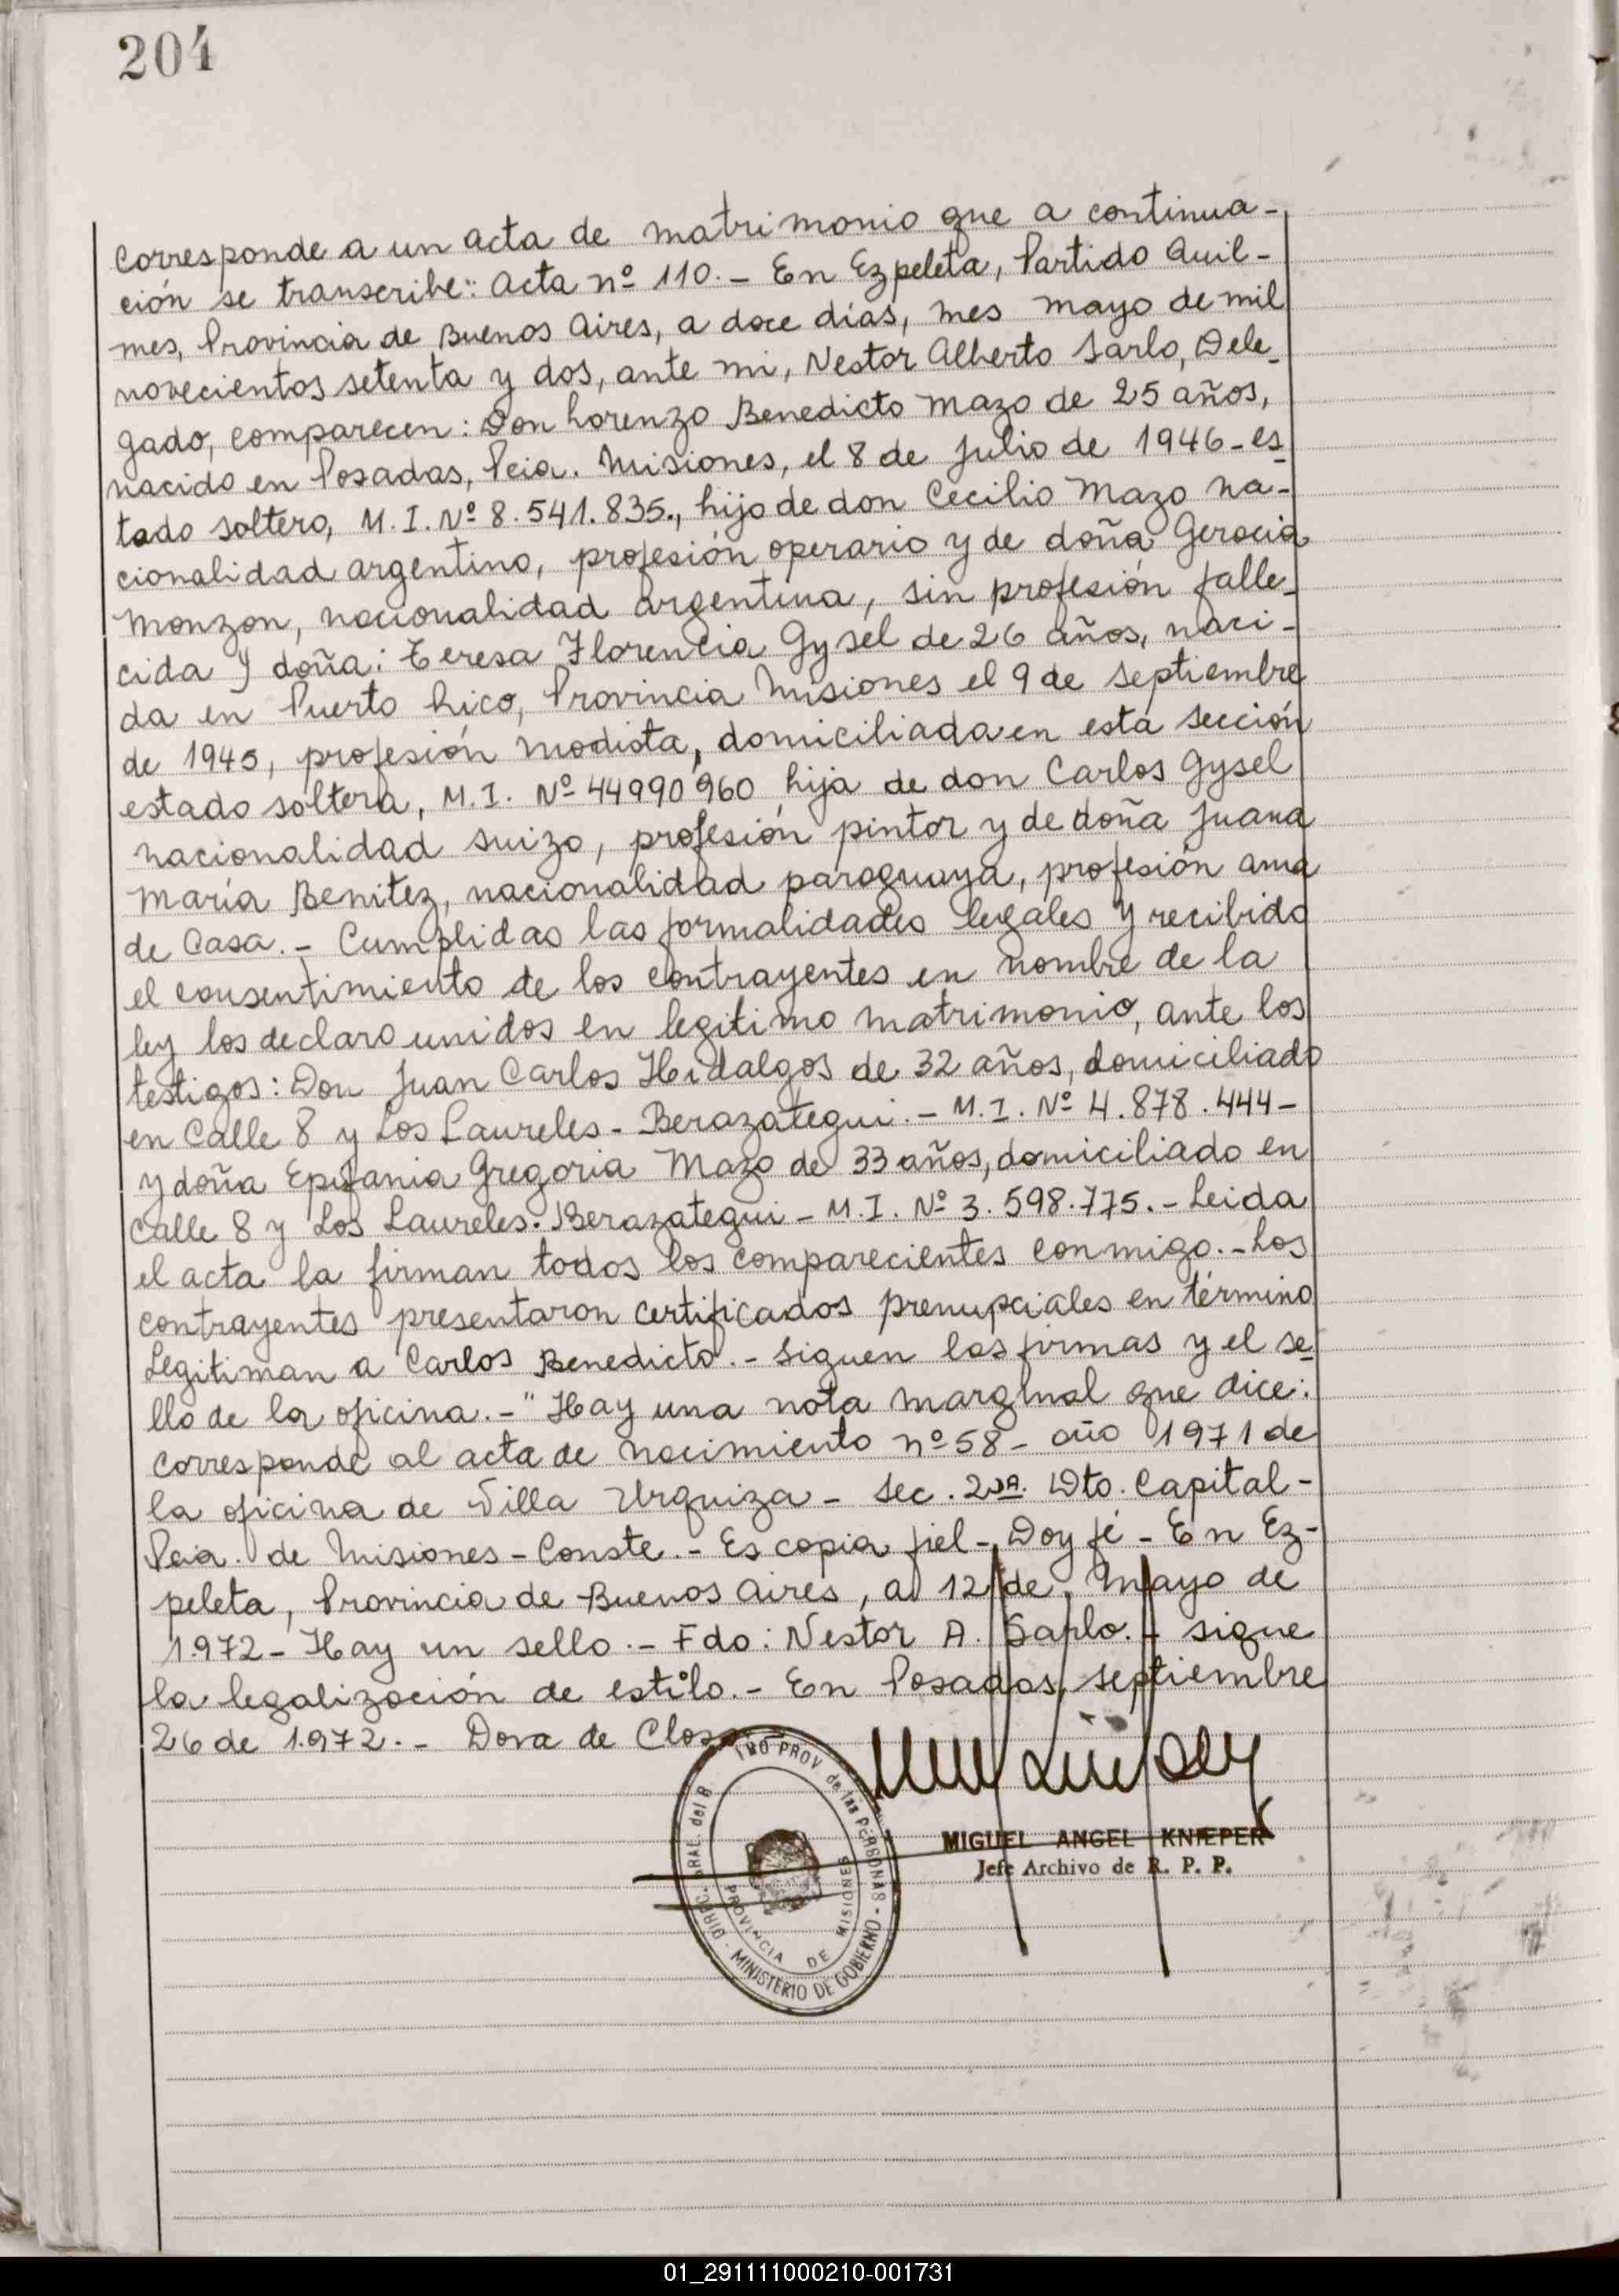 204
Corresponde a un acta de matrimonio que a continua-
ción se transcribe: Acta nº 110.- En Ezpeleta, Partido Quil-
mes, Provincia de Buenos Aires, a doce días, mes mayo de mil
novecientos setenta y dos, ante mi, Nestor Alberto Sarlo, Dele-
gado, comparecen: Don Lorenzo Benedicto Mazo de 25 años,
nacido en Posadas, Pcia. Misiones, el 8 de Julio de 1946-es
tado soltero, M.I. Nº 8.541.835., hijo de don Cecilio Mazo na-
cionalidad argentino, profesión operario y de doña Gerocia
Monzon, nacionalidad argentina, sin profesión falle-
cida y doña: Teresa Florencia Gysel de 26 años, naci-
da en Puerto Rico, Provincia Misiones el 9 de septiembre
de 1945, profesión modista, domiciliada en esta sección
estado soltera, M.I. Nº 44990960 hija de don Carlos Gysel
nacionalidad suizo, profesión pintor y de doña Juana
María Benitez, nacionalidad paraguaya, profesión ama
de Casa.- Cumplidas las formalidades legales y recibido
el consentimiento de los contrayentes en nombre de la
ley los declaro unidos en legitimo matrimonio, ante los
testigos: Don Juan Carlos Hidalgos de 32 años, domiciliado
en Calle 8 y Los Laureles- Berazategui.- M.I. Nº 4.878.444-
y doña Epifania Gregoria Mazo de 33 años, domiciliado en
calle 8 y Los Laureles. Berazategui- M.I. Nº 3.598.775.- Leida
el acta la firman todos los comparecientes conmigo.- Los
contrayentes presentaron certificados prenupciales en término
Legitiman a Carlos Benedicto.- Siguen las firmas y el se
llo de la oficina.-" Hay una nota marginal que dice:
Corresponde al acta de nacimiento nº 58- año 1971 de
la oficina de Villa Urquiza- Sec. 2da. Dto. Capital-
Pcia. de Misiones-Conste.- Es copia fiel-Doy fé- En Ez-
peleta, Provincia de Buenos Aires, a 12 de Mayo de
1.972- Hay un sello.- Fdo: Nestor A. Sarlo.- sigue
la legalización de estilo.- En Posadas, septiembre
26 de 1.972.- Dora de Closs
DIREC. GRAL. del R PROV de las PERSONAS - MINISTERIO DE GOBIERNO -
PROVINCIA DE MISIONES
MIGUEL ANGEL KNIEPER
Jefe Archivo de R. P. P.
01_291111000210-001731